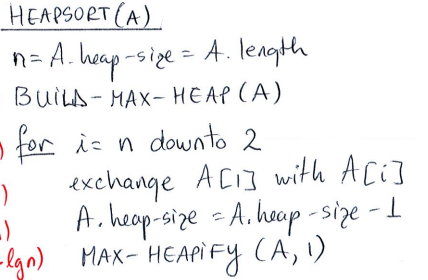 HEAPSORT(A)
n = A.heap-size = A.length
BUILD-MAX-HEAP(A)
) for i = n downto 2
) exchange A[1] with A[i]
) A.heap-size = A.heap-size - 1
lgn) MAX-HEAPIFY (A, 1)